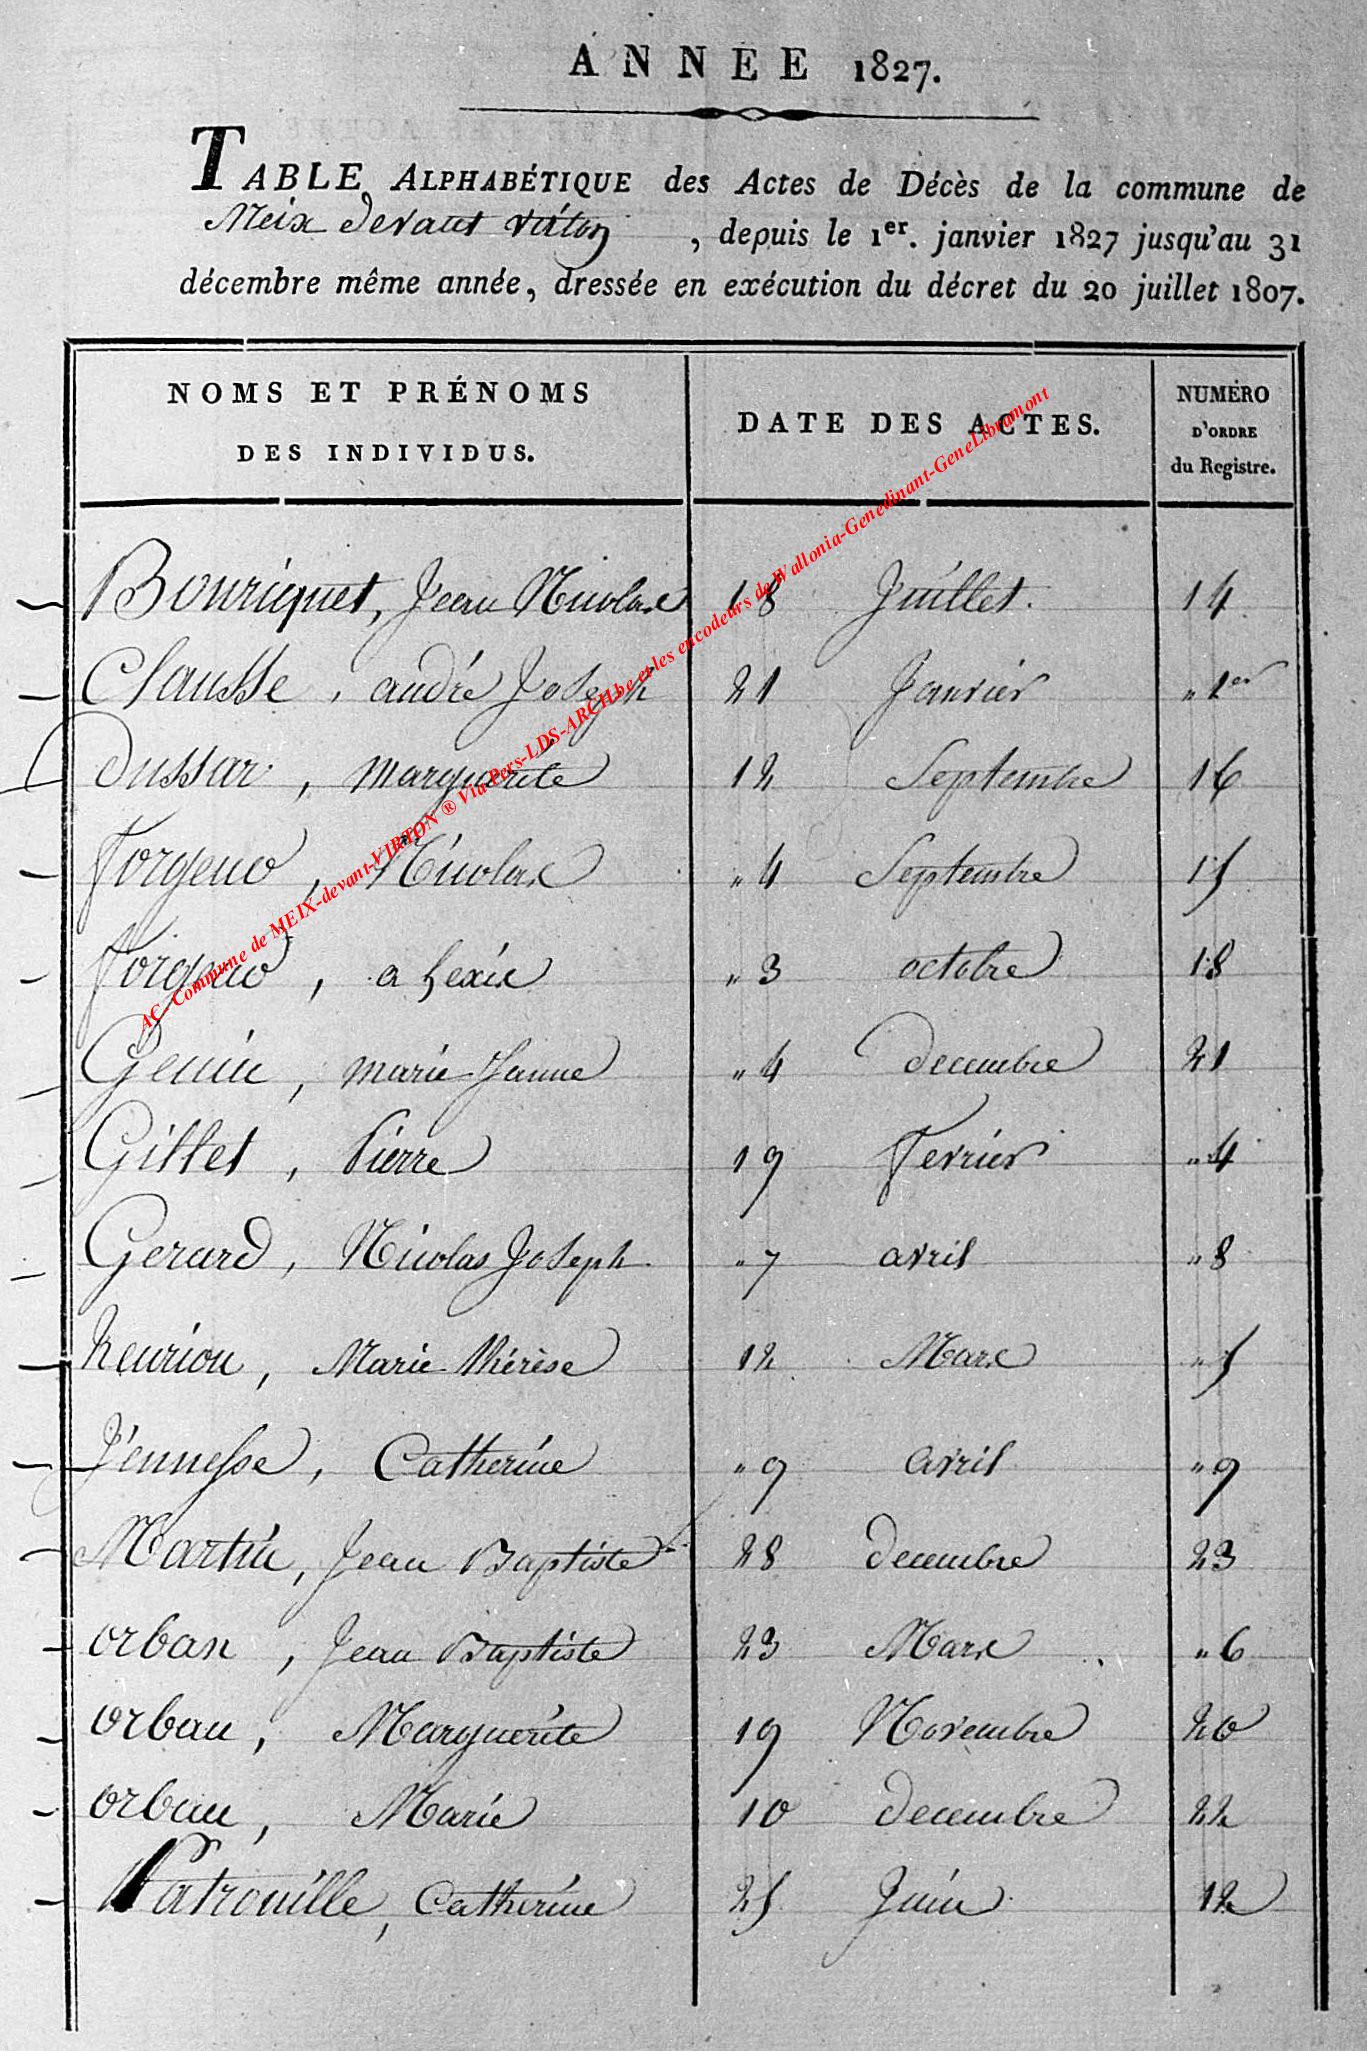 ANNÉE 1827.
TABLE ALPHABÉTIQUE des Actes de Décès de la commune de
Meix devant virton, depuis le 1er. janvier 1827 jusqu'au 31
décembre même année, dressée en exécution du décret du 20 juillet 1807.
NOMS ET PRÉNOMS DES INDIVIDUS. DATE DES ACTES. NUMÉRO D'ORDRE du Registre.
Bouriquet, Jean Nicolas 18 Juillet. 14
Clausse, andré Joseph 21 Janvier " 1er
Dussar, marguerite 12 Septembre 16
Forgeuo, Nicolas " 4 Septembre 15
Forgeuo, alexix " 3 octobre 18
Genin, marie Jeanne " 4 decembre 21
Gillet, Pierre 19 Fevrier " 4
Gerard, Nicolas Joseph " 7 avril " 8
henrion, Marie thérèse 12 Mars " 5
Jennesse, Catherine " 9 avril " 9
Martin, Jean Baptiste 28 decembre 23
orban, Jean Baptiste 23 Mars " 6
orban, Marguerite 19 Novembre 20
orban, Marie 10 decembre 22
Patrouille, Catherine 25 Juin 12
AC-Commune de MEIX-devant-VIRTON ® Via Pers-LDS-ARCH.be et les encodeurs de Wallonia-Genedinant-GeneLibramont